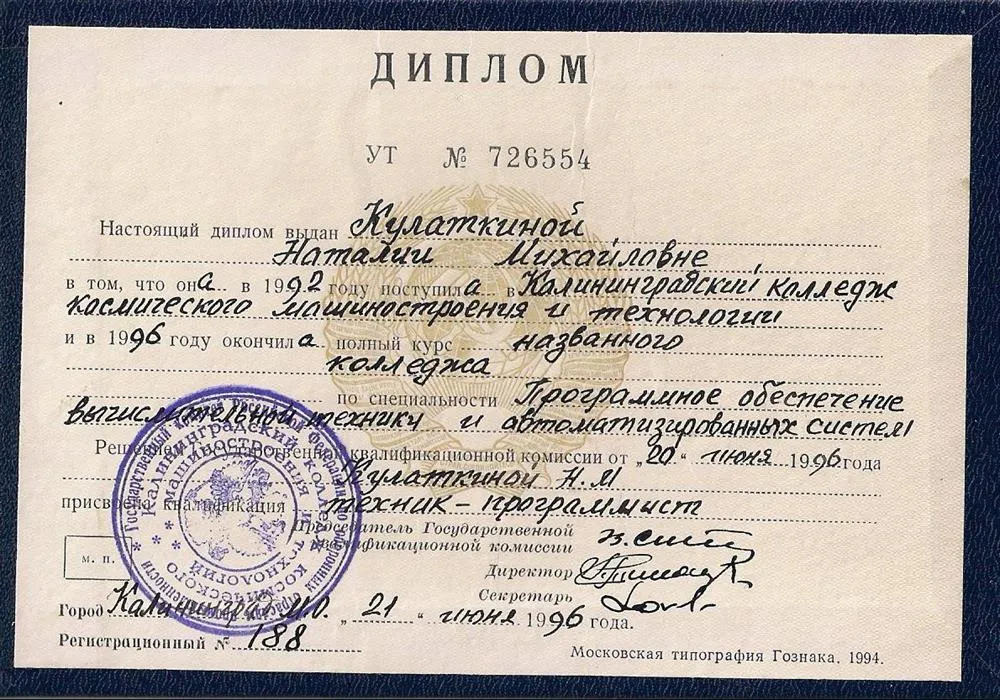 ДИПЛОМ
УТ № 726554
Настоящий диплом выдан Кулаткиной
Наталии Михайловне
в том, что она в 1992 году поступила в Калининградский колледж
космического машиностроения и технологии
и в 1996 году окончила полный курс названного
колледжа
по специальности Программное обеспечение
вычислительной техники и автоматизированных систем
Решением Государственной квалификационной комиссии от „20“ июня 1996 года
Кулаткиной Н.М
присвоена квалификация техник-программист
Председатель Государственной
квалификационной комиссии
Директор
Секретарь
м. п.
Город Калининград М.О. „21“ июня 1996 года.
Регистрационный № 188
Московская типография Гознака. 1994.
Калининградский колледж
космического машиностроения и технологий